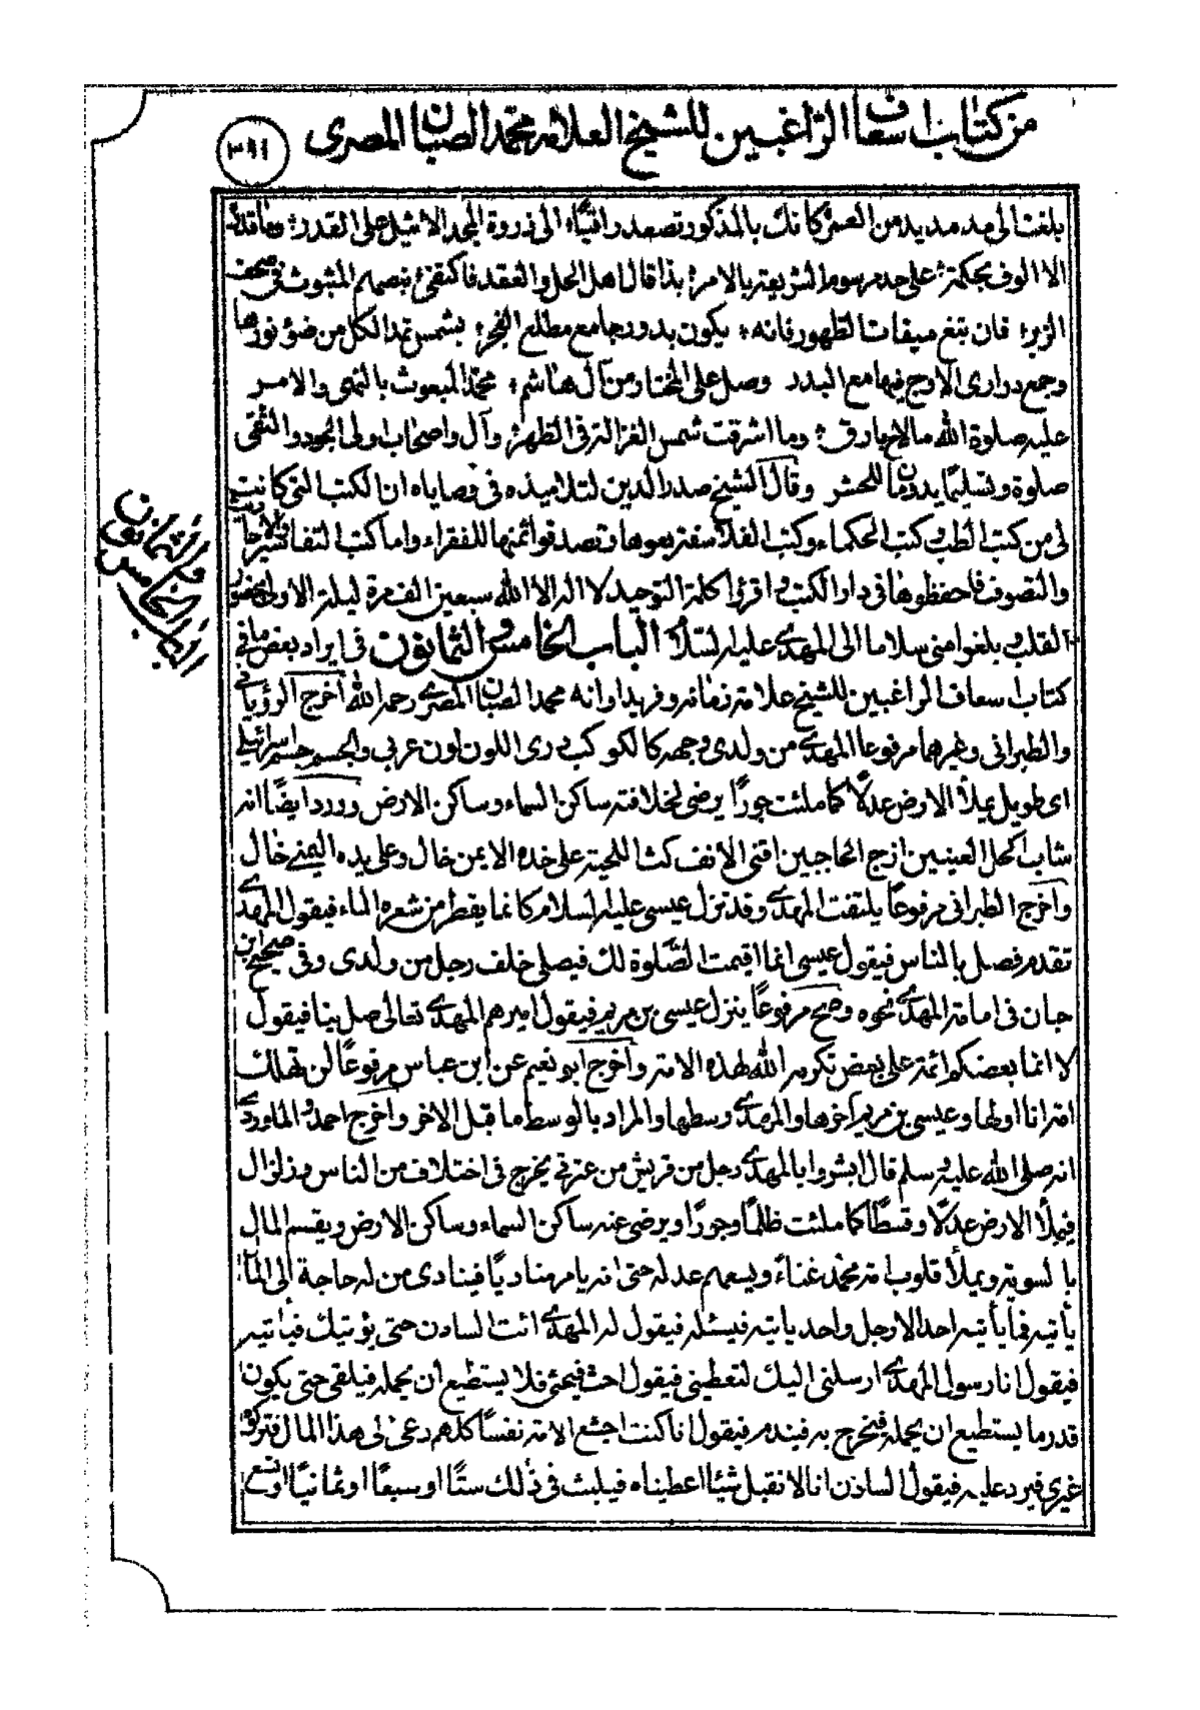 من كتاب اسعاف الراغبين للشيخ العلامة محمد الصبان المصرى
بلغت الى مد مديد من العمر كانك بالمذكور تصعد راقياً الى ذروة المجد الاثيل على القدر
الا الوف بحكمة على حد مرسوم الشريعة بالامر بذا قال اهل الحل والعقد فاكتفى بنصهم المثبوت فى صحف
الزبر فان تبغ ميقات الظهور فانه يكون بدور جامع مطلع الفجر بشمس تمد الكل من ضوء نورها
وجمع درارى الاوج فيها مع البدر وصل على المختار من آل هاشم محمد المبعوث بالنهى والامر
عليه صلوة الله مالاح بارق وما اشرقت شمس الغزالة فى الظهر وآل واصحاب اولى الجود والتقى
صلوة وتسليما يدومان للحشر وقال الشيخ صدر الدين لتلاميذه فى وصاياه ان الكتب التى كانت
لى من كتب الطب وكتب الحكماء وكتب الفلاسفة بيعوها وتصدقوا ثمنها للفقراء واما كتب التفاسير والاحاديث
والتصوف فاحفظوها فى دار الكتب واقرؤا كلمة التوحيد لا اله الا الله سبعين الف مرة ليلة الاولى بحضور
القلب وبلغوا منى سلاما الى المهدى عليه السلام الباب الخامس والثمانون فى ايراد بعض ما فى
الباب الخامس والثمانون
كتاب اسعاف الراغبين للشيخ علامة زمانه وفريد اوانه محمد الصبان المصرى رحمه الله اخرج الرؤيانى
والطبرانى وغيرهما مرفوعا المهدى من ولدى وجهه كالكوكب درى اللون لون عربى والجسم جسم اسرائيلى
اى طويل يملأ الارض عدلاً كما ملئت جوراً يرضى لخلافته ساكن السماء وساكن الارض وورد ايضاً انه
شاب اكحل العينين ازج الحاجبين اقنى الانف كث اللحية على خده الايمن خال وعلى يده اليمنى خال
واخرج الطبرانى مرفوعاً يلتفت المهدى وقد نزل عيسى عليه السلام كانما يقطر من شعره الماء فيقول المهدى
تقدم فصل بالناس فيقول عيسى انما اقيمت الصّلوة لك فيصلى خلف رجل من ولدى وفى صحيح ابن
حبان فى امامة المهدى نحوه وصح مرفوعاً ينزل عيسى بن مريم فيقول اميرهم المهدى تعالى صل بنا فيقول
لا انما بعضكم ائمة على بعض تكرمة الله لهذه الامة واخرج ابو نعيم عن ابن عباس مرفوعاً لن تهلك
امة انا اولها وعيسى بن مريم آخرها والمهدى وسطها والمراد بالوسط ما قبل الاخر واخرج احمد والماوردى
انه صلى الله عليه وسلم قال ابشروا بالمهدى رجل من قريش من عترتى يخرج فى اختلاف من الناس وزلزال
فيملأ الارض عدلاً وقسطاً كما ملئت ظلماً وجوراً ويرضى عنه ساكن السماء وساكن الارض ويقسم المال
بالسوية ويملأ قلوب امة محمد غناءً ويسعهم عدله حتى انه يامر منادياً فينادى من له حاجة الى المال
يأتيه فما يأتيه احد الا رجل واحد ياتيه فيسئله فيقول له المهدى ائت السادن حتى يؤتيك فيأتيه
فيقول انا رسول المهدى ارسلنى اليك لتعطينى فيقول احث فيحثى فلا يستطيع ان يحمله فيلقى حتى يكون
قدر ما يستطيع ان يحمله فيخرج به فيندم فيقول انا كنت اجشع الامة نفساً كلهم دعى الى هذا المال فتركه
غيرى فيرد عليه فيقول السادن انا لا نقبل شيئا اعطيناه فيلبث فى ذلك ستاً او سبعاً او ثمانياً او تسع